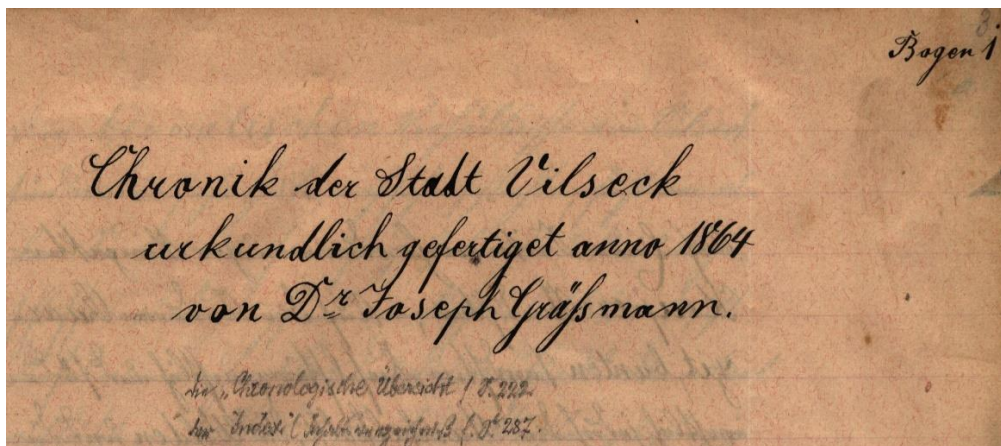 Bogen 1
Chronik der Stadt Vilseck
urkundlich gefertiget anno 1864
von Dr Joseph Gräßmann.
die „Chronologische Übersicht S. 222.
der „Index“ (Inhaltsverzeichniß) S. 287.